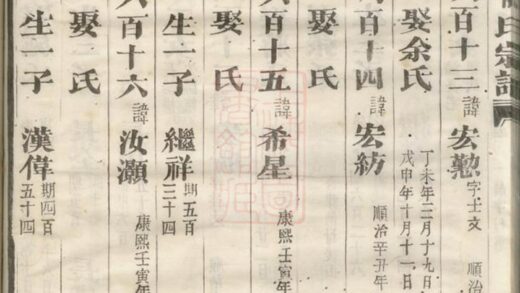 氏宗譜
百十三 諱 宏懃 字士文 順治
丁未年二月十九日
娶余氏 戊申年十月十一日
百十四 諱 宏紡 順治辛丑年
娶 氏
百十五 諱 希星 康熙壬寅年
娶 氏
生一子 繼祥 期五百三十四
百十六 諱 汝灝 康熙壬寅年
娶 氏
生一子 漢偉 期四百五十四